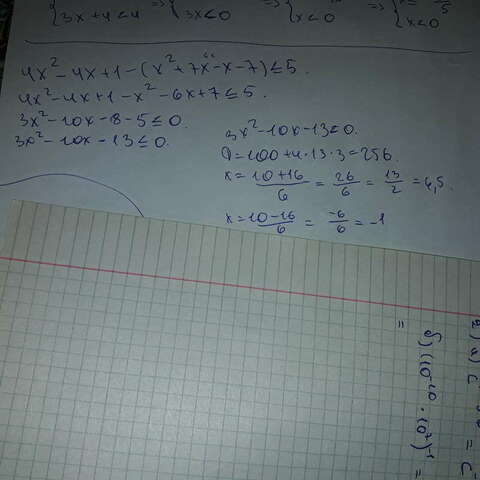 3x+4<4 => 3x<0 => x<0 => x<0
4x²-4x+1-(x²+7x-x-7)≤5.
4x²-4x+1-x²-6x+7≤5.
3x²-10x-8-5≤0.
3x²-10x-13≤0.
3x²-10x-13≤0.
D=100+4·13·3=256.
x=(10+16)/6=26/6=13/2=6,5.
x=(10-16)/6=-6/6=-1
2) a) c
б) (10⁻¹⁰·10⁷)⁻¹=
=